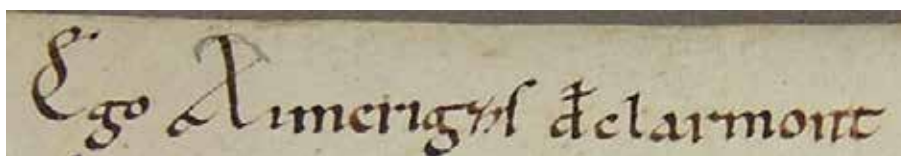 Ego Aimerigus de clarmont